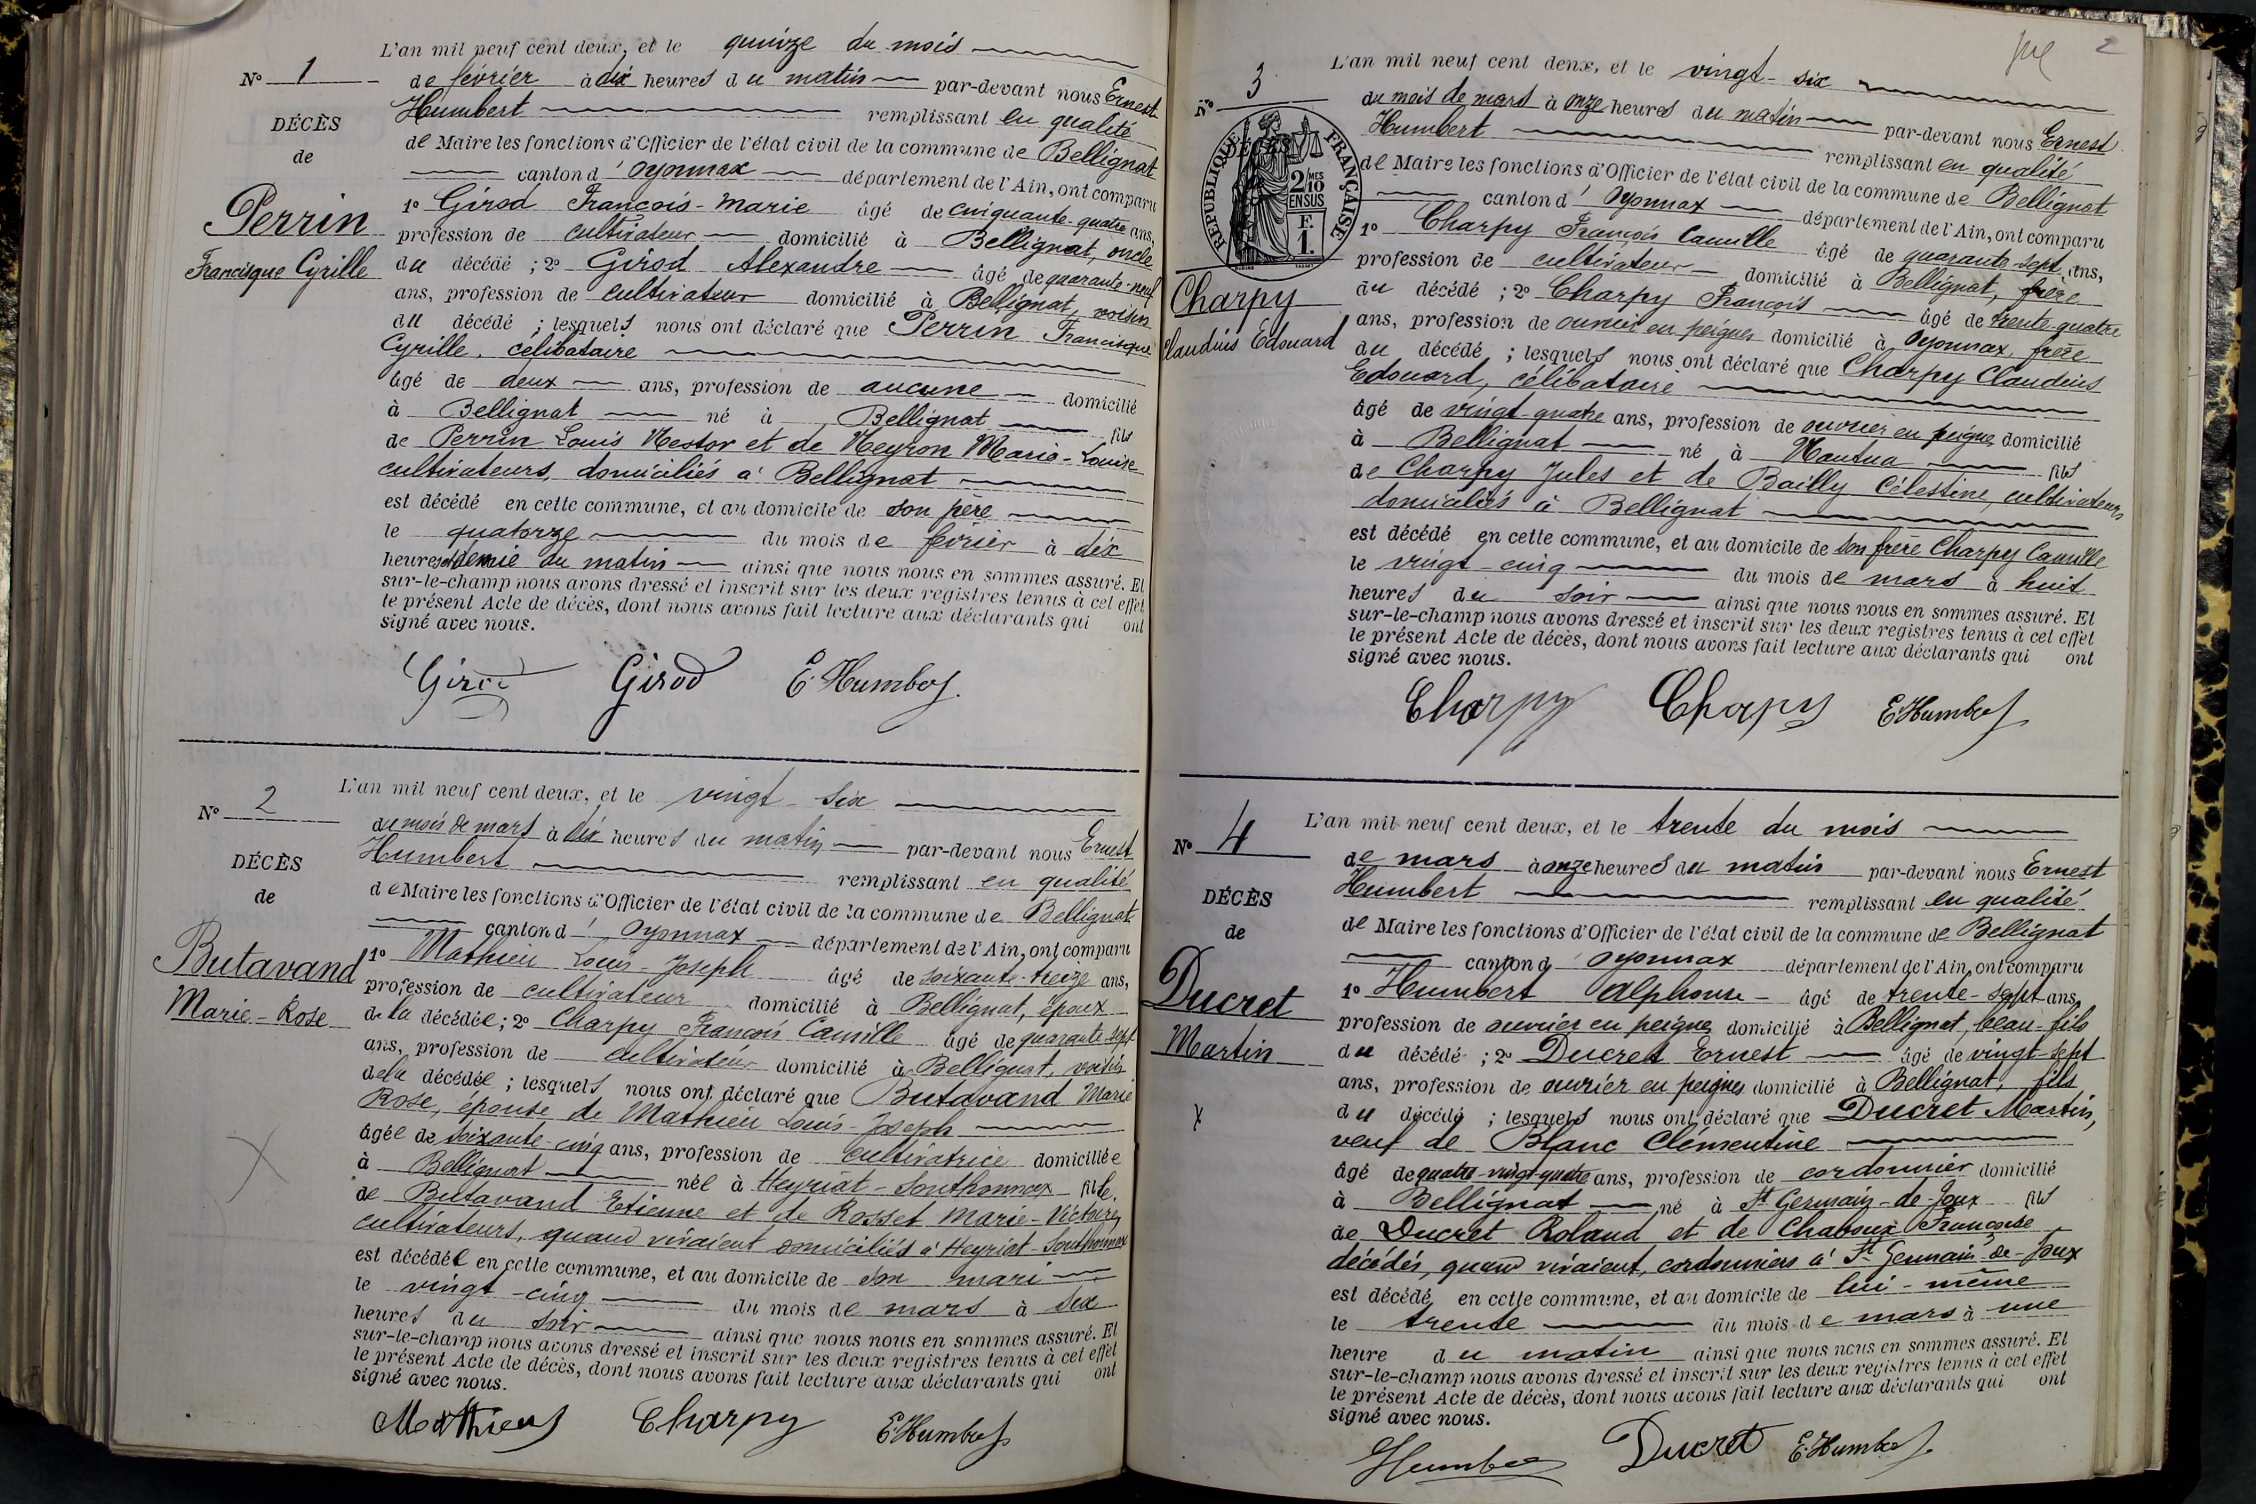 L'an mil neuf cent deux, et le quinze du mois
N° 1
de février à dix heures du matin par-devant nous Ernest
Humbert remplissant en qualité
DÉCÈS
de Maire les fonctions d'Officier de l'état civil de la commune de Bellignat
de
canton d'Oyonnax département de l'Ain, ont comparu
Perrin
Francisque Cyrille
1° Girod François-Marie âgé de cinquante-quatre ans,
profession de cultivateur domicilié à Bellignat, oncle
du décédé ; 2° Girod Alexandre âgé de quarante-neuf
ans, profession de cultivateur domicilié à Bellignat, voisin
du décédé ; lesquels nous ont déclaré que Perrin Francisque
Cyrille, célibataire
âgé de deux ans, profession de aucune domicilié
à Bellignat né à Bellignat fils
de Perrin Louis Nestor et de Neyron Marie-Louise
cultivateurs, domiciliés à Bellignat
est décédé en cette commune, et au domicile de son père
le quatorze du mois de février à dix
heures demie du matin ainsi que nous nous en sommes assuré. Et
sur-le-champ nous avons dressé et inscrit sur les deux registres tenus à cet effet
le présent Acte de décès, dont nous avons fait lecture aux déclarants qui ont
signé avec nous.
Girod Girod E. Humbert
L'an mil neuf cent deux, et le vingt-six
N° 2
du mois de mars à dix heures du matin par-devant nous Ernest
Humbert remplissant en qualité
DÉCÈS
de Maire les fonctions d'Officier de l'état civil de la commune de Bellignat
de
canton d'Oyonnax département de l'Ain, ont comparu
Butavand
Marie-Rose
1° Mathieu Louis-Joseph âgé de soixante-treize ans,
profession de cultivateur domicilié à Bellignat, époux
de la décédée ; 2° Charpy François Camille âgé de quarante sept
ans, profession de cultivateur domicilié à Bellignat, voisin
de la décédée ; lesquels nous ont déclaré que Butavand Marie
Rose, épouse de Mathieu Louis-Joseph
âgée de soixante-cinq ans, profession de cultivatrice domiciliée
à Bellignat née à Heyriat-Sonthonnax fille
de Butavand Etienne et de Rosset Marie-Victoire,
cultivateurs, quand vivaient domiciliés à Heyriat-Sonthonnax
est décédée en cette commune, et au domicile de son mari
le vingt-cinq du mois de mars à six
heures du soir ainsi que nous nous en sommes assuré. Et
sur-le-champ nous avons dressé et inscrit sur les deux registres tenus à cet effet
le présent Acte de décès, dont nous avons fait lecture aux déclarants qui ont
signé avec nous.
Mathieu Charpy E. Humbert
2
L'an mil neuf cent deux, et le vingt-six
N° 3
du mois de mars à onze heures du matin par-devant nous Ernest
Humbert remplissant en qualité
DÉCÈS
RÉPUBLIQUE FRANÇAISE
2 MES
10 EN SUS
F. 1.
de Maire les fonctions d'Officier de l'état civil de la commune de Bellignat
canton d'Oyonnax département de l'Ain, ont comparu
Charpy
Claudius Edouard
1° Charpy François Camille âgé de quarante-sept ans,
profession de cultivateur domicilié à Bellignat, frère
du décédé ; 2° Charpy François âgé de trente-quatre
ans, profession de ouvrier en peignes domicilié à Oyonnax, frère
du décédé ; lesquels nous ont déclaré que Charpy Claudius
Edouard, célibataire
âgé de vingt-quatre ans, profession de ouvrier en peignes domicilié
à Bellignat né à Nantua fils
de Charpy Jules et de Bailly Célestine, cultivateurs
domiciliés à Bellignat
est décédé en cette commune, et au domicile de son frère Charpy Camille
le vingt-cinq du mois de mars à huit
heures du soir ainsi que nous nous en sommes assuré. Et
sur-le-champ nous avons dressé et inscrit sur les deux registres tenus à cet effet
le présent Acte de décès, dont nous avons fait lecture aux déclarants qui ont
signé avec nous.
Charpy Charpy E. Humbert
L'an mil neuf cent deux, et le trente du mois
N° 4
de mars à onze heures du matin par-devant nous Ernest
Humbert remplissant en qualité
DÉCÈS
de Maire les fonctions d'Officier de l'état civil de la commune de Bellignat
de
canton d'Oyonnax département de l'Ain, ont comparu
Ducret
Martin
1° Humbert Alphonse âgé de trente-sept ans,
profession de ouvrier en peignes domicilié à Bellignat, beau-fils
du décédé ; 2° Ducret Ernest âgé de vingt-sept
ans, profession de ouvrier en peignes domicilié à Bellignat, fils
du décédé ; lesquels nous ont déclaré que Ducret Martin,
veuf de Blanc Clémentine
âgé de quatre-vingt-quatre ans, profession de cordonnier domicilié
à Bellignat né à St Germain-de-Joux fils
de Ducret Roland et de Chaboux Françoise
décédés, quand vivaient, cordonniers à St Germain-de-Joux
est décédé en cette commune, et au domicile de lui-même
le trente du mois de mars à une
heure du matin ainsi que nous nous en sommes assuré. Et
sur-le-champ nous avons dressé et inscrit sur les deux registres tenus à cet effet
le présent Acte de décès, dont nous avons fait lecture aux déclarants qui ont
signé avec nous.
Humbert Ducret E. Humbert